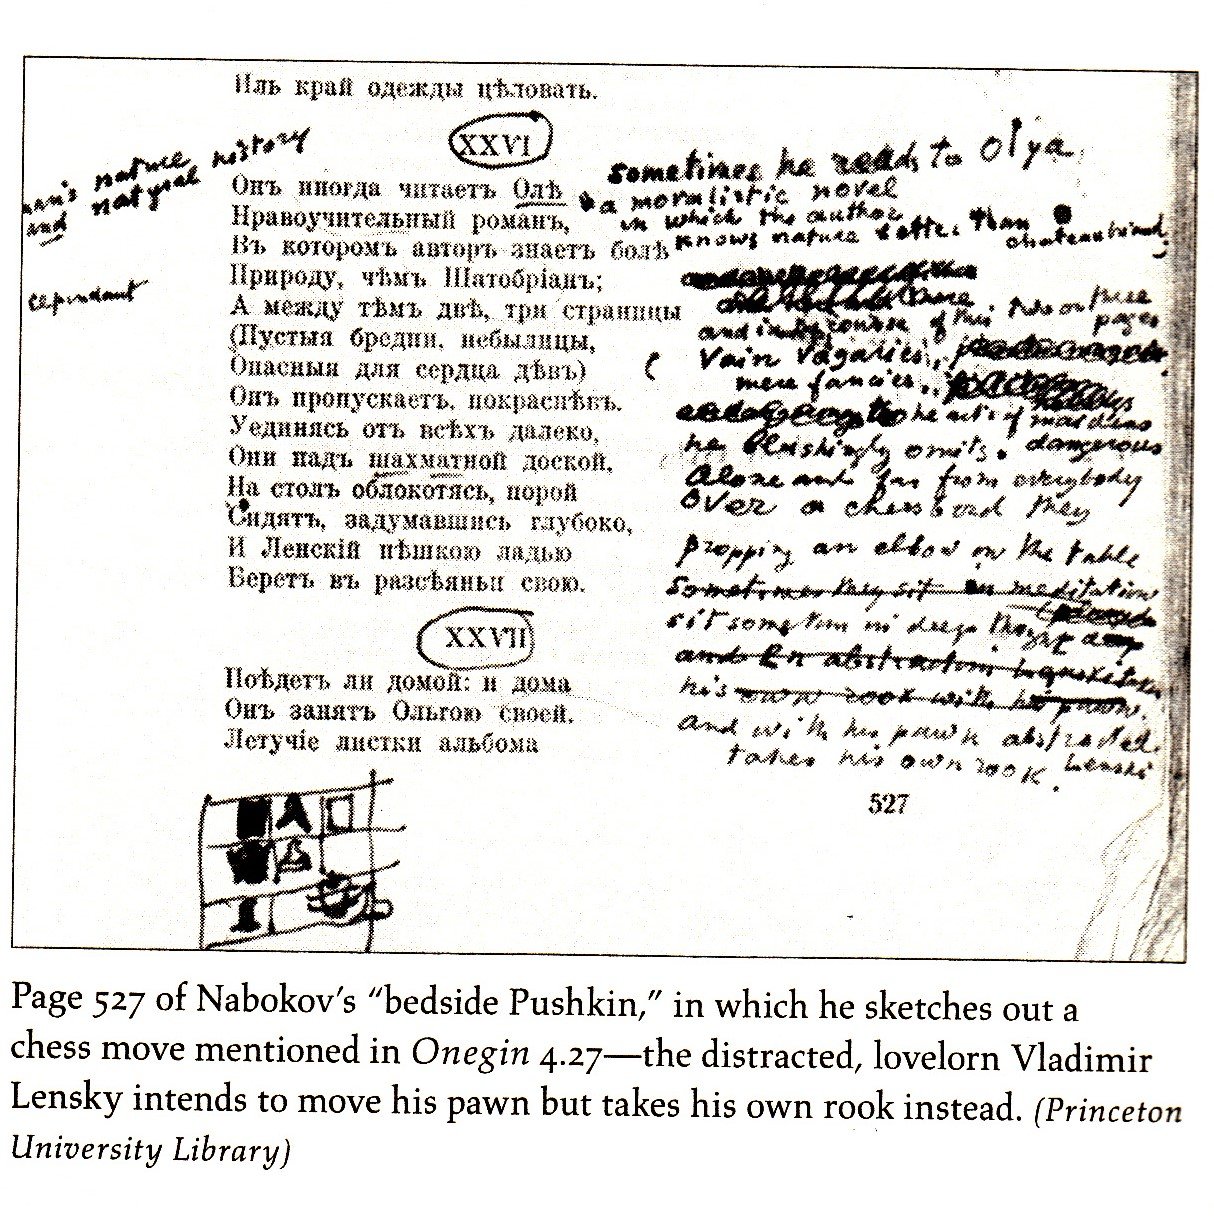 Иль край одежды цѣловать.
XXVI
man's nature
and natural history
Онъ иногда читаетъ Олѣ
Нравоучительный романъ,
Въ которомъ авторъ знаетъ болѣ
Природу, чѣмъ Шатобріанъ;
cependant
А между тѣмъ двѣ, три страницы
(Пустыя бредни, небылицы,
Опасныя для сердца дѣвъ)
Онъ пропускаетъ, покраснѣвъ.
Уединясь отъ всѣхъ далеко,
Они надъ шахматной доской,
На столъ облокотясь, порой
Сидятъ, задумавшись глубоко,
И Ленскій пѣшкою ладью
Беретъ въ разсѣяньи свою.
XXVII
Поѣдетъ ли домой: и дома
Онъ занятъ Ольгою своей.
Летучіе листки альбома
sometimes he reads to Olya
a moralistic novel
in which the author
knows nature better than
chateaubriand
and in the course of this two or three
pages
Vain vagaries,
mere fancies,
to hearts of maidens
he blushingly omits. dangerous
Alone and far from everybody
over a chessboard they
propping an elbow on the table
sometimes they sit in meditation
sit sometim in deep
and in abstraction Lenski takes
his own rook with his pawn.
and with his pawn abstracted
takes his own rook. Lenski
527
Page 527 of Nabokov's “bedside Pushkin,” in which he sketches out a
chess move mentioned in Onegin 4.27—the distracted, lovelorn Vladimir
Lensky intends to move his pawn but takes his own rook instead. (Princeton
University Library)